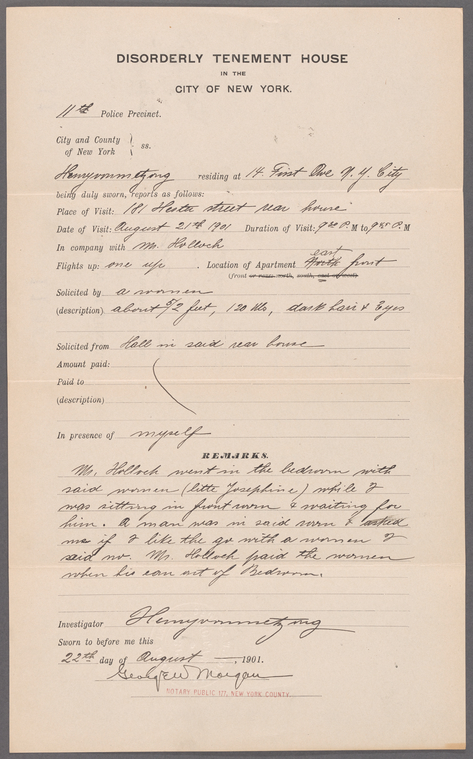 DISORDERLY TENEMENT HOUSE
IN THE
CITY OF NEW YORK.
11th Police Precinct.
City and County
of New York } ss.
Henryvonmetzong residing at 14 First Ave N. Y. City
being duly sworn, reports as follows:
Place of Visit: 181 Hester street rear house
Date of Visit: August 21th 1901 Duration of Visit: P. M to P. M
In company with Mr. Holloch
east
Flights up: one up . Location of Apartment North front
(front or rear: north, south, east or west)
Solicited by a women
(description) about 5/2 feet, 120 lbs, dark hair & Eyes
Solicited from Hall in said rear house
Amount paid:
Paid to
(description)
In presence of myself
REMARKS.
Mr. Holloch went in the bedroom with
said women (little Josephine) while I
was sitting in frontroom & waiting for
him. A man was in said room & asked
me if I like the go with a women I
said no. Mr. Holloch paid the women
when his can out of Bedroom.
Investigator Henryvonmetzong
Sworn to before me this
22th day of August , 1901.
George W Morgan
NOTARY PUBLIC 117, NEW YORK COUNTY.